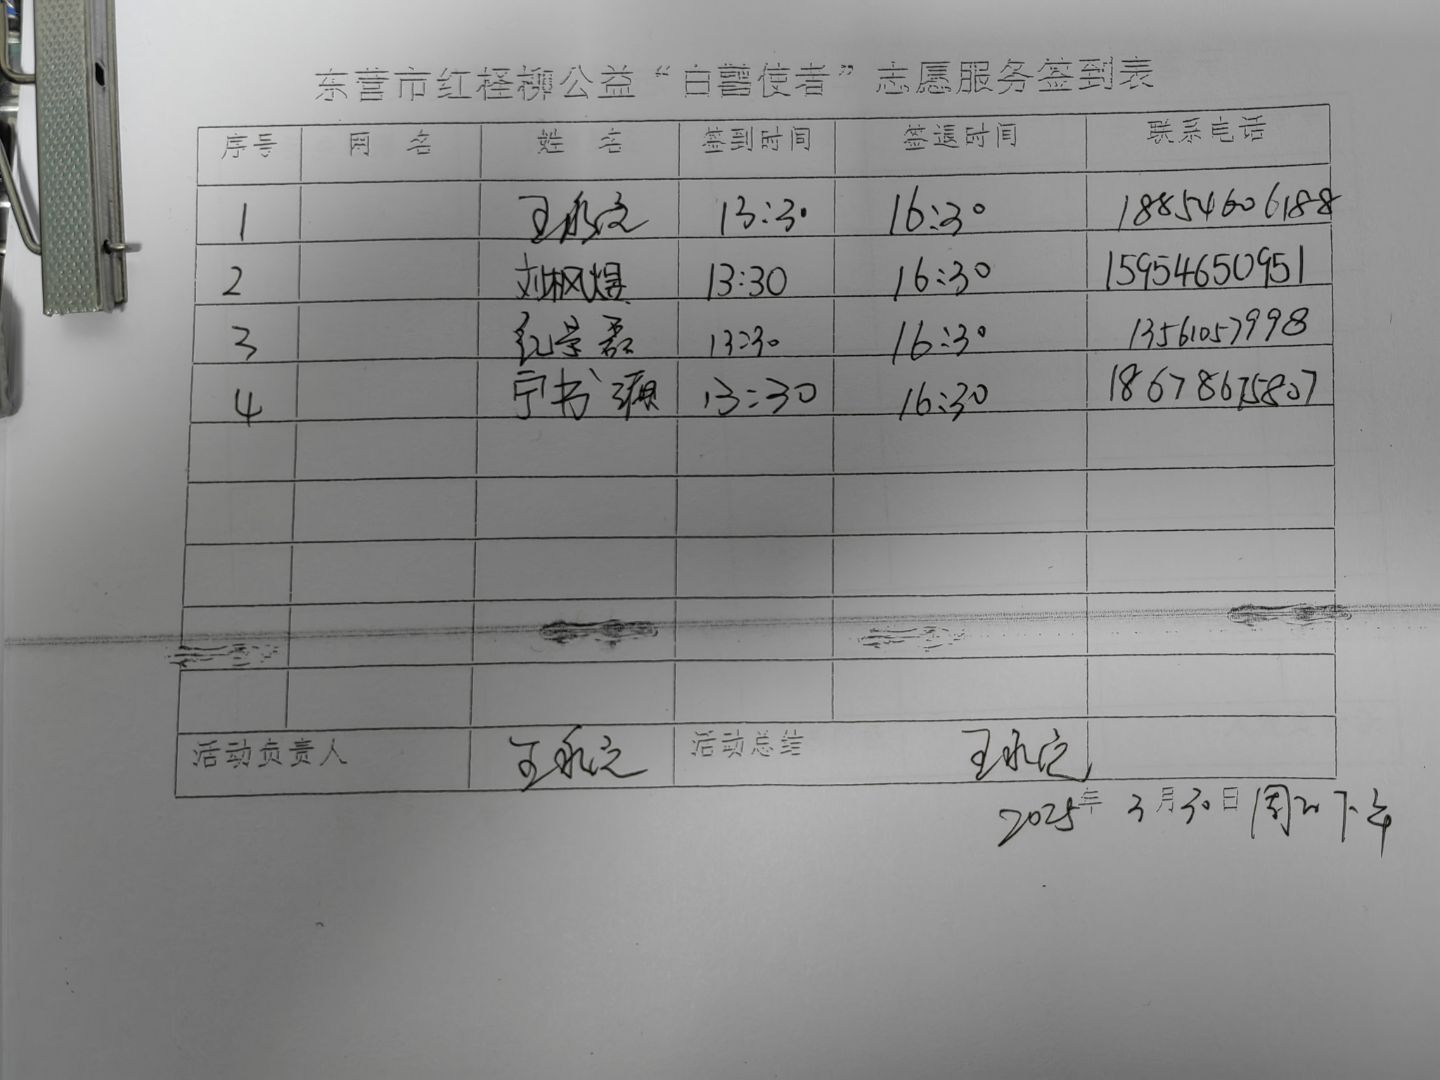 东营市红柽柳公益“白鹭使者”志愿服务签到表
序号 网 名 姓 名 签到时间 签退时间 联系电话
1 王永定 13:30 16:30 18854606188
2 刘枫煜 13:30 16:30 15954650951
3 纪景磊 13:30 16:30 13561057998
4 宁书灏 13:30 16:30 18678675807
活动负责人 王永定 活动总结 王永定
2025年3月30日 周日下午